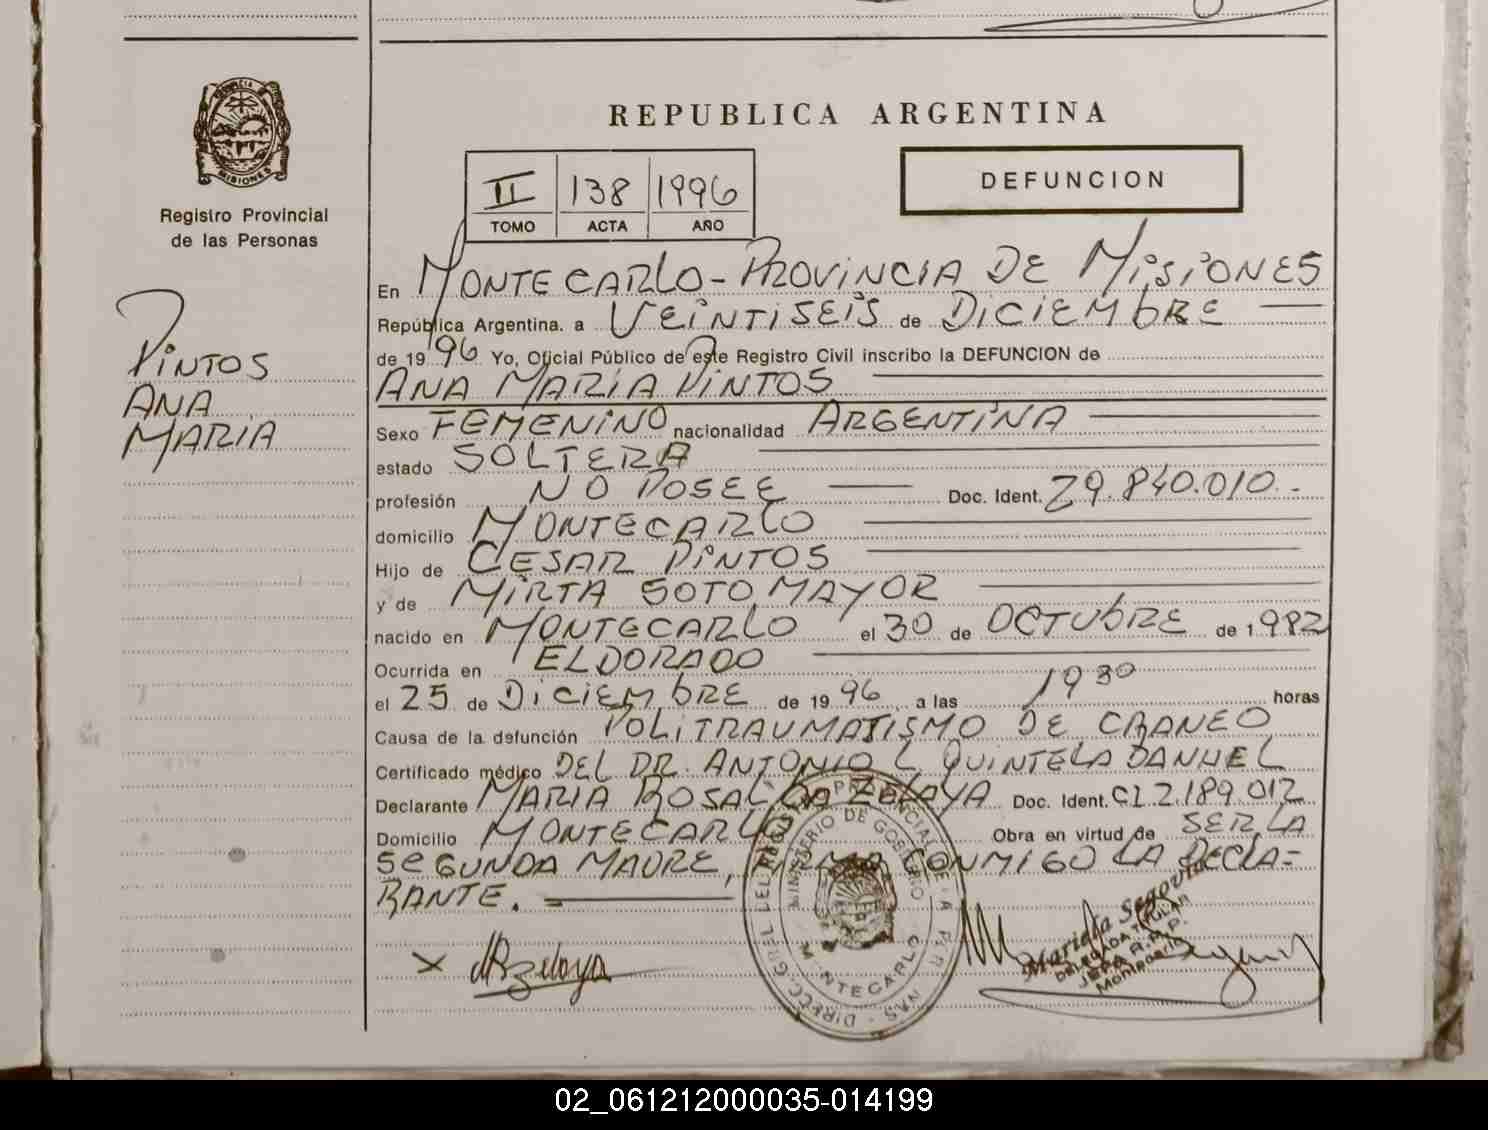 REPUBLICA ARGENTINA
PROVINCIA
MISIONES
Registro Provincial
de las Personas
II 138 1996
TOMO ACTA AÑO
DEFUNCION
PINTOS
ANA
MARIA
En MONTECARLO - PROVINCIA DE MISIONES
República Argentina, a VEINTISEIS de DICIEMBRE
de 1996 Yo, Oficial Público de este Registro Civil inscribo la DEFUNCION de
ANA MARIA PINTOS
Sexo FEMENINO nacionalidad ARGENTINA
estado SOLTERA
profesión NO POSEE Doc. Ident. 29.840.010.-
domicilio MONTECARLO
Hijo de CESAR PINTOS
y de MIRTA SOTO MAYOR
nacido en MONTECARLO el 30 de OCTUBRE de 1.982
Ocurrida en ELDORADO
el 25 de DICIEMBRE de 1996, a las 19 30 horas
Causa de la defunción POLITRAUMATISMO DE CRANEO
Certificado médico DEL DR. ANTONIO L QUINTELA
Declarante MARIA ROSALBA ZELAYA Doc. Ident. CI 2.189.012
Domicilio MONTECARLO Obra en virtud de SER LA
SEGUNDA MADRE, FIRMA CONMIGO LA DECLA=
RANTE.
x MRZelaya
DIRECC. GRAL. DEL REGISTRO PROVINCIAL DE LAS PERSONAS
MINISTERIO DE GOBIERNO
MONTECARLO
Mariela Segovia
DELEGADA TITULAR
02_061212000035-014199